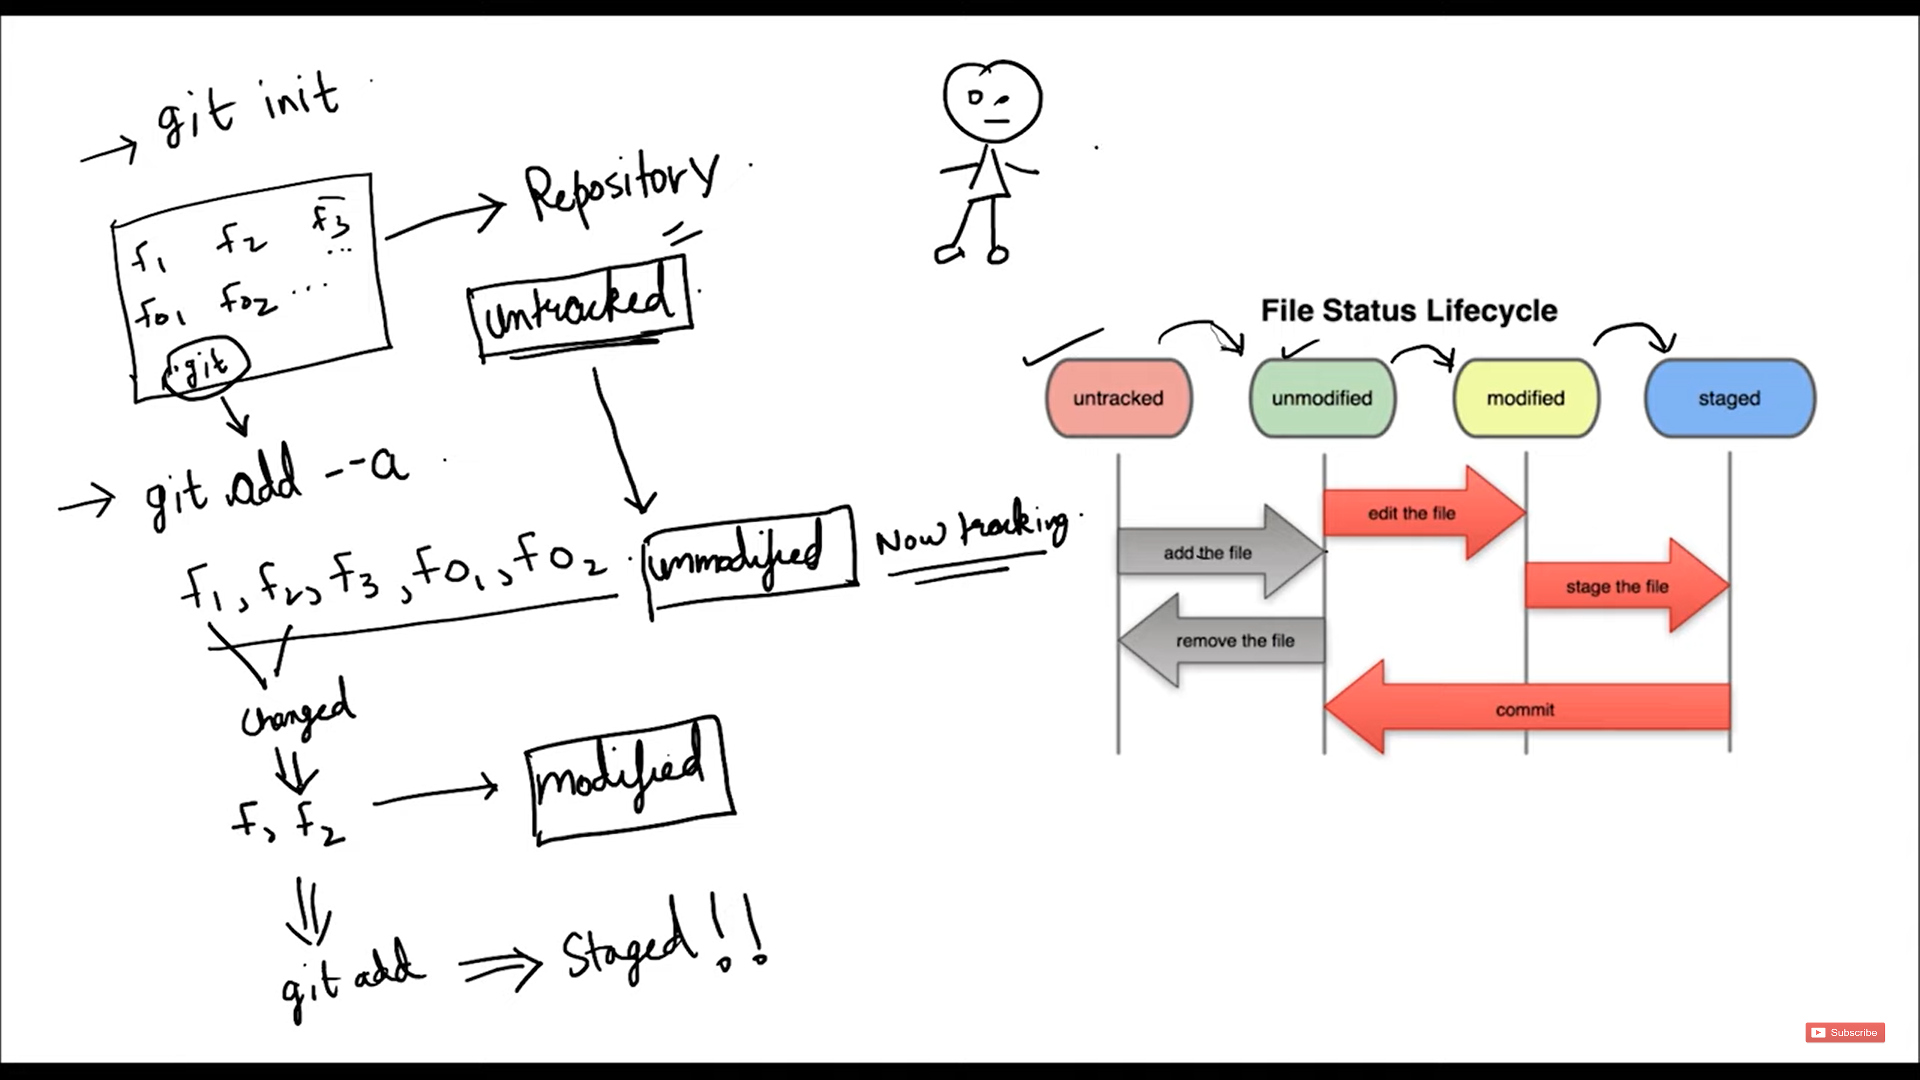 → git init
f1 f2 f3 ...
f01 f02 ...
.git
Repository
untracked
→ git add --a
f1, f2, f3, f01, f02
unmodified
Now tracking.
changed
f, f2
modified
git add ⇒ Staged!!
File Status Lifecycle
untracked unmodified modified staged
edit the file
add the file
stage the file
remove the file
commit
Subscribe